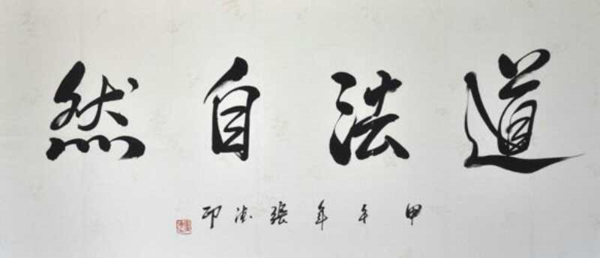 道法自然
甲午年張印